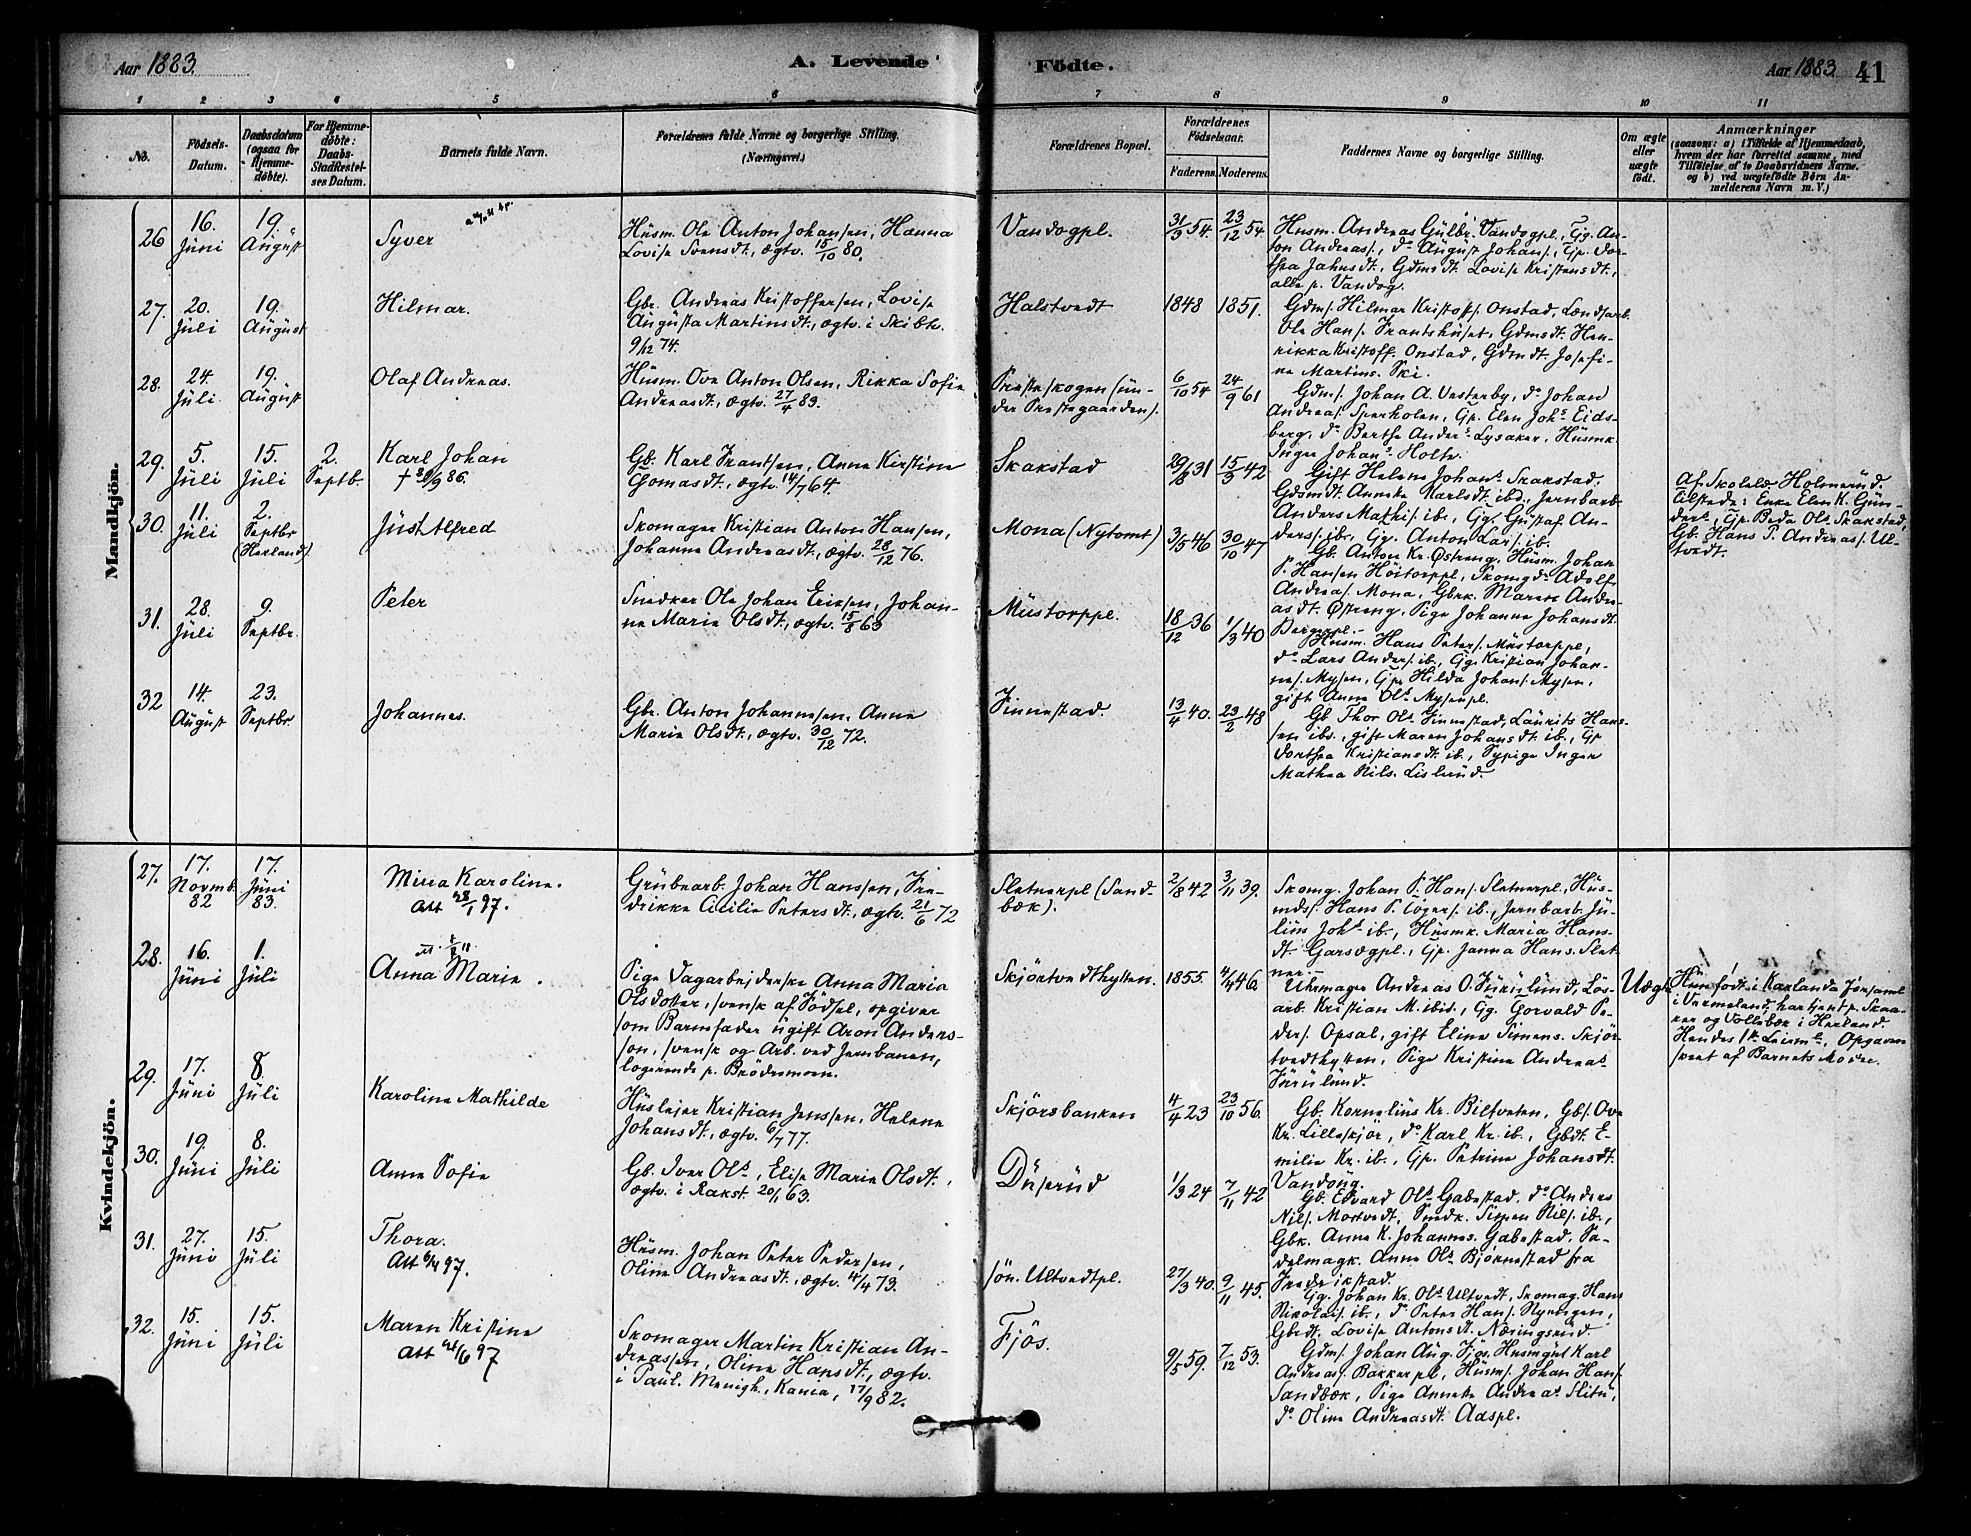 Aar 1883.
A. Levende
Födte.
Aar 1883. 41
1 2 3 4 5 6 7 8 9 10 11
No.
Födsels-
Datum.
Daabsdatum
(ogsaa for
Hjemme-
döbte).
For Hjemme-
döbte:
Daabs-
Stadfæstel-
ses Datum.
Barnets fulde Navn.
Forældrenes fulde Navne og borgerlige Stilling.
(Næringsvei.)
Forældrenes Bopæl.
Forældrenes
Födselsaar.
Faderens. Moderens.
Faddernes Navne og borgerlige Stilling.
Om ægte
eller
uægte
födt.
Anmærkninger
(saasom: a) i Tilfælde af Hjemmedaab,
hvem der har forrettet samme, med
Tilföielse af to Daabsvidners Navne.
og b) ved uægtefödte Börn An-
melderens Navn m. V.)
Mandkjön.
26
16.
Juni
19.
August
Syver
Husm. Ole Anton Johansen, Hanna
Lovise Svensdt., ægtv. 15/10 80.
Vandogpl.
31/3 54.
23/12 54
Husm. Andreas Gulbr. Vandogpl., Gg. An-
ton Andreas/., do August Johans/., Gp. Dor-
thea Jahnsdt., Gdmsdt. Lovise Kristensdt.,
alle p. Vandog.
27.
20.
Juli
19.
August
Hilmar.
Gbr. Andreas Kristoffersen, Lovise
Augusta Martinsdt., ægtv. i Skibtv.
9/12 74.
Halstvedt
1848
1851.
Gdms. Hilmar Kristoffs. Onstad, Landarb.
Ole Hans. Frantshuset, Gdmsdt. Hen-
rikka Kristoff. Onstad, Gdmdt. Josefi-
ne Martins. Ski.
28.
24.
Juli
19.
August
Olaf Andreas.
Husm. Ove Anton Olsen, Rikka Sofie
Andreasdt., ægtv. 27/4 83.
Presteskogen (un-
der Prestegaarden).
6/10 54
24/9 61
Gdms. Johan A. Vesterby, do Johan
Andreas. Sperkolen, Gp. Elen Johs. Eids-
berg, do Berthe Anders. Lysaker, Husmk.
Inger Johans. Holtv.
29.
5.
Juli
15.
Juli
2.
Septb.
Karl Johan
Gb. Karl Frantsen, Anne Kirstine
Thomasdt., ægtv. 14/7 64.
Skakstad
29/8 31
15/3 42
Gift Helene Johans. Skakstad,
Gdsmdt. Anneke Karlsdt. ibd., Jernbarb.
Anders Mathis. ib., Gg. Gustaf An-
ders. ib., Gg. Anton Lars. ib.
Af Skolelr. Holmerud.
tilstede: Enke Elen K. Gun-
ders., Gp. Beda Ols. Skakstad,
Gb. Hans P. Andreas. Ul-
tvedt.
30.
11.
Juli
2.
Septbr
(Herland)
Just Alfred
Skomager Kristian Anton Hansen,
Johanne Andreasdt., ægtv. 28/12 76.
Mona (Nytomt)
3/5 46
30/10 47
Gb. Anton Kr. Østreng, Husm. Johan
P. Hansen Höitorppl., Skomgd. Adolf
Andreas. Mona, Gbrk. Maren Andre-
asdt. Østreng, Pige Johanne Johansdt.
Bergerpl.
31.
28.
Juli
9.
Septbr.
Peter
Snedker Ole Johan Eriksen, Johan-
ne Marie Olsdt., ægtv. 15/8 63
Mustorppl.
18/12 36
1/3 40
Husm. Hans Peters. Mustorppl.,
do Lars Anders. ib., Gg. Kristian Johan-
nes. Mysen, Gp. Hilda Johans. Mysen,
gift Anne Ols. Mysenpl.
32
14.
August
23.
Septbr
Johannes.
Gbr. Anton Johannesen, Anne
Marie Olsdt., ægtv. 30/12 72.
Finnestad.
13/4 40.
23/2 48
Gb Thor Ols. Finnestad, Laurits Hans-
sen ib., gift Maren Johansdt. ib., Gp
Dorthea Kristiansdt. ib., Sypige Inger
Mathea Nils. Lislerud.
Kvindekjön.
27.
17.
Novmb.
82
17.
Juni
83.
Mina Karoline.
Att 28/1 97.
Grubearb. Johan Hanssen, Fre-
drikke Cicilie Petersdt., ægtv. 21/6 72
Sletnerpl (Sand-
bæk).
2/8 42
3/11 39.
Skomg. Johan P. Hans. Sletnerpl., Hus-
mds. Hans P. Töger. ib., Jernbarb. Ju-
lius Johs. ib., Husmk. Maria Hans-
dt. Garsegpl., Gp. Janna Hans. Slet-
ner.
28.
16.
Juni
1.
Juli
Anna Marie.
Pige Dagarbejderske Anna Maria
Olsdotter, svensk af Födsel, opgiver
som Barnefader ugift Aron Anders-
son, svensk og Arb. ved Jernbanen,
logerende p. Brödremoen.
Skjörtvedthytten.
1855.
4/4 46
Uhrmager Andreas O. Furulund, Lös-
arb. Kristian M. ibid., Gg. Thorvald Pe-
ders. Opsal, gift Eline Simens. Skjör-
tvedthytten, Pige Kristine Andreas.
Furulund.
Uægte
Hun födt i Karlanda Forsaml.
i Vermeland, har tjent p. Skaa-
ker og Vollebæk i Herland.
Hendes 1ste Leierm., Opgaven
svert af Barnets Moder.
29.
17.
Juni
8.
Juli
Karoline Mathilde
Huslejer Kristian Jenssen, Helene
Johansdt., ægtv. 6/7 77.
Skjörsbanken
4/4 23
23/10 56.
Gb. Kornelius Kr. Biltveten, Gbs. Ove
Kr. Lilleskjör, do Karl Kr. ib., Gbdt. E-
milie Kr. ib., Gp. Petrine Johansdt.
Vandong.
30.
19.
Juni
8.
Juli
Anne Sofie
Gb. Iver Ols., Elise Marie Olsdt.,
ægtv. i Rakst. 20/1 63.
Duserud
1/3 24
7/11 42
Gb. Edvard Ols. Gabestad, do Anders
Nils. Mortvedt, Snedk. Simen Nils. ib.,
Gbk. Anne K. Johannes. Gabestad, Sa-
delmagk. Anne Ols. Bjørnestad fra
Frederikstad.
31.
27.
Juni
15.
Juli
Thora.
Att 6/4 97.
Husm. Johan Peter Pedersen,
Oline Andreasdt., ægtv. 4/4 73.
sön. Ultvedtpl.
27/3 40.
9/11 45.
Gg. Johan Kr. Ols. Ultvedt, Skomag. Hans
Nikolais. ib., do Peter Hans. Nybergen,
Gbrdt. Lovise Antonsdt. Næringsrud.
32.
15.
Juni
15.
Juli
Maren Kristine
Skomager Martin Kristian An-
dreassen, Oline Hansdt., ægtv.
i Paul. Menigh., Krania, 17/9 82.
Fjös.
9/5 59.
7/12 53.
Gdms. Johan Aug. Fjös, Husmgut Karl
Andreas. Bakkerpl., Husms. Johan Hans.
Sandbæk, Pige Annette Andreas. Slitu,
do Oline Andreasdt. Aaspl.